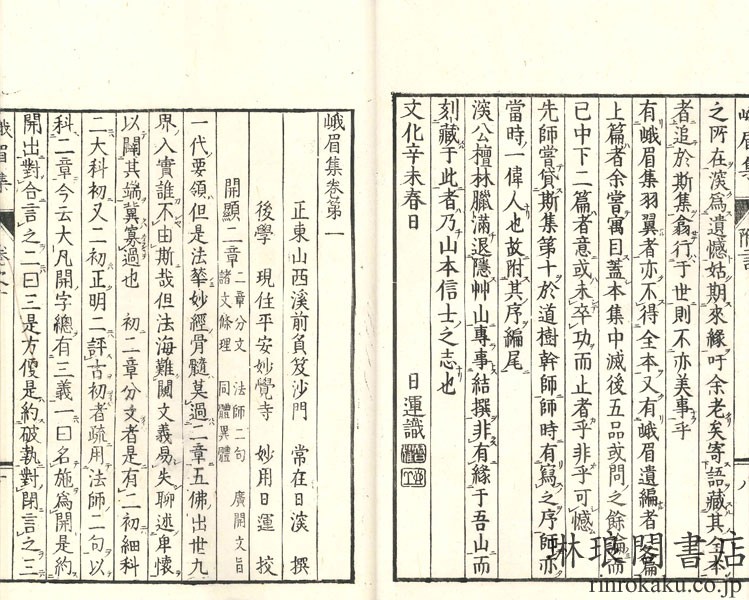 之所在深爲遺憾姑期來緣吁余老矣寄語藏其全本
者追於斯集翕行于世則不亦美事乎
有峨眉集羽翼者亦不得全本又有峨眉遺編者上篇
上篇者余嘗寓目蓋本集中滅後五品或問之餘論而
已中下二篇者意或未卒功而止者乎非乎可憾
先師嘗貸斯集第十於道樹幹師師時有寫之序師亦
當時一偉人也故附其序編尾
深公檀林臘滿退隱艸山專事結撰非有緣于吾山而
刻藏于此者乃山本信士之志也
文化辛未春日
日運識
峨眉集卷第一
正東山西溪前負笈沙門 常在日深 撰
後學 現住平安妙覺寺 妙用日運 挍
開顯二章 二章分文 法師二句 廣開文旨
諸文條理 同體異體
一代要領但是法華妙經骨髓莫過二章五佛出世九
界入實誰不由斯哉但法海難闚文義易失聊述卑懷
以闡其端冀寡過也 初二章分文者是有二初細科
二大科初又二初正明二評古初者疏用法師二句以
科二章今云大凡開字總有三義一曰名施爲開是約
開出對合言之二曰三是方便是約破執對閉言之三
琳琅閣書店
rinrokaku.co.jp